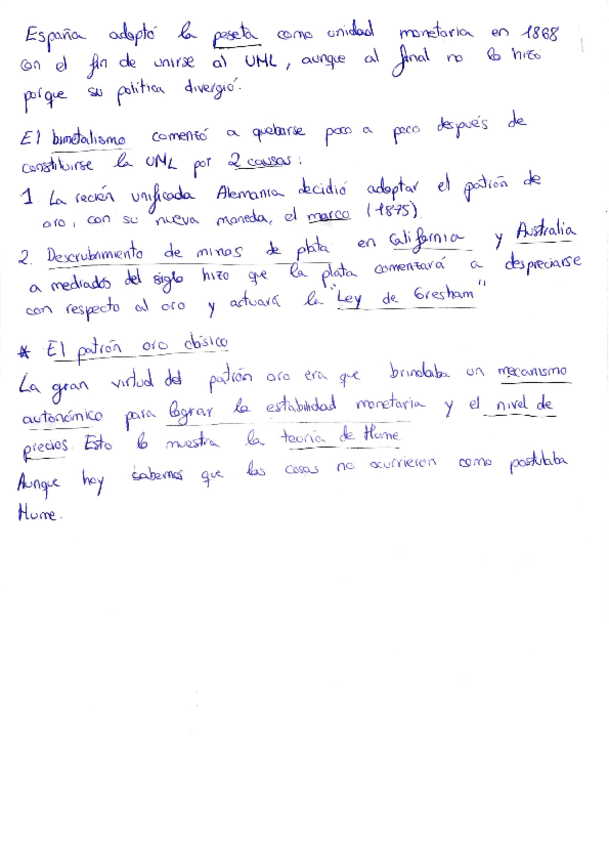 España adoptó la peseta como unidad monetaria en 1868
con el fin de unirse al UML, aunque al final no lo hizo
porque su política divergió.
El bimetalismo comenzó a quebarse poco a poco después de
constituirse la UML por 2 causas:
1 La recién unificada Alemania decidió adoptar el patrón de
oro, con su nueva moneda, el marco (1875)
2. Descrubrimiento de minas de plata en California y Australia
a mediados del siglo hizo que la plata comenzará a despreciarse
con respecto al oro y actuará la "Ley de Gresham"
* El patrón oro clásico
La gran virtud del patrón oro era que brindaba un mecanismo
autonómico para lograr la estabilidad monetaria y el nivel de
precios. Esto lo muestra la teoría de Hume
Aunque hoy sabemos que las cosas no ocurrieron como postulaba
Hume.